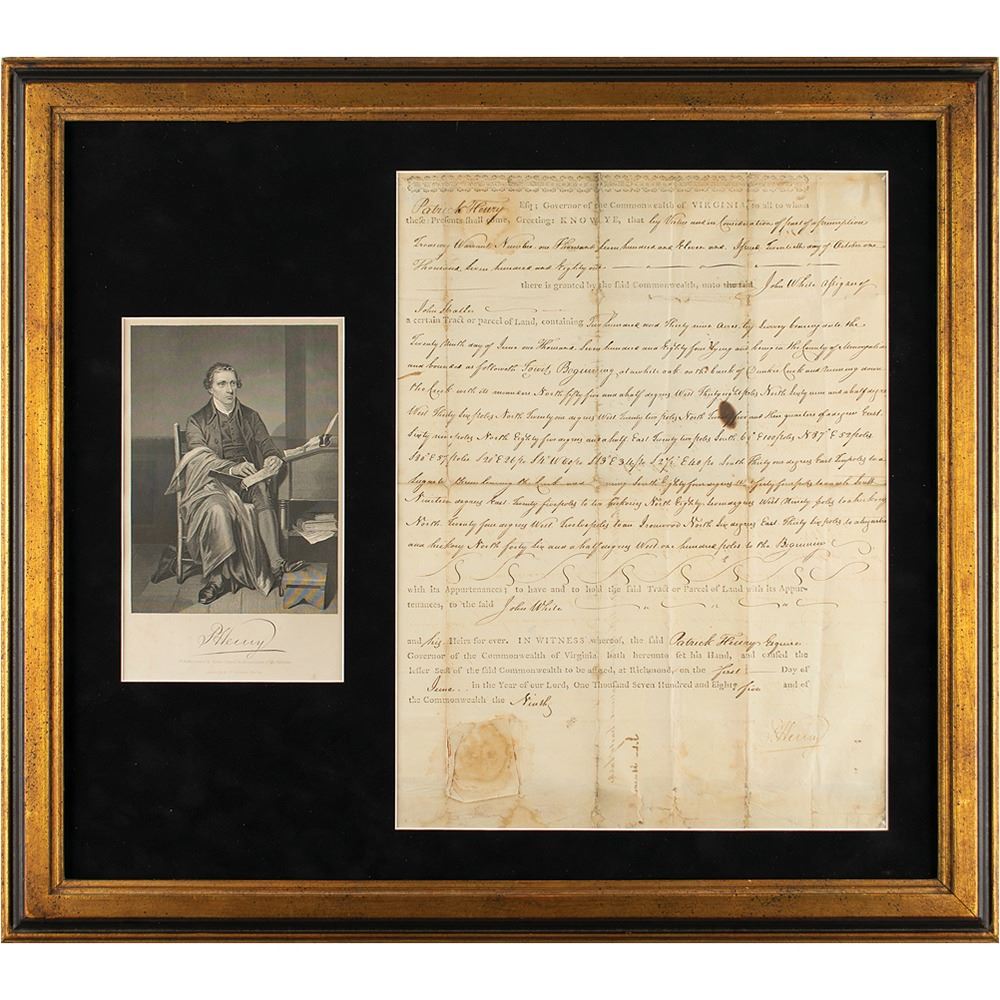 Patrick Henry Esq; Governor of the Commonwealth of VIRGINIA, to all to whom
these Presents shall come, Greeting: KNOW YE, that by Virtue and in Consideration of part of a
Treasury Warrant Number one Thousand Seven hundred and Eleven and Issued Twentieth day of October one
Thousand Seven hundred and Eighty
there is granted by the said Commonwealth, unto the said John White Assignee of
John
a certain Tract or parcel of Land, containing Two hundred and Thirty nine Acres by Survey bearing date the
Twenty Ninth day of June one Thousand Seven hundred and Eighty four lying and being in the County of Monongalia
and bounded as followeth Towit, Beginning at a white oak on the bank of Dunker Creek and Running down
the Creek with its meanders North fifty five and a half degrees West Thirty eight poles North Sixty nine and a half degrees
West Thirty Six poles North Twenty one degrees West Twenty two poles North Twenty five and three quarters of a degree East
Sixty nine poles North Eighty five degrees and a half East Twenty two poles South 65° E 100 poles N 87° E 52 poles
S 80° E 57 poles S 20° E 26 po S 4° W 60 po S 13° E 34 po S 27½° E 40 po South Thirty one degrees East Ten poles to a
Sugartree Thence leaving the Creek and Running South Eighty four degrees West forty four poles to South
Nineteen degrees East Twenty five poles to two hickorys North Eighty degrees West Ninety poles to a hickory
North Twenty four degrees West Twelve poles to an Ironwood North Six degrees East Thirty Six poles to a Sugartree
and hickory North forty Six and a half degrees West one hundred poles to the Beginning
with its Appurtenances; to have and to hold the said Tract or Parcel of Land with its Appur-
tenances, to the said John White
and his Heirs for ever. IN WITNESS whereof, the said Patrick Henry Esquire
Governor of the Commonwealth of Virginia hath hereunto set his Hand, and caused the
lesser Seal of the said Commonwealth to be affixed, at Richmond, on the first Day of
June in the Year of our Lord, One Thousand Seven Hundred and Eighty five and of
the Commonwealth the Ninth
P. Henry
P. Henry